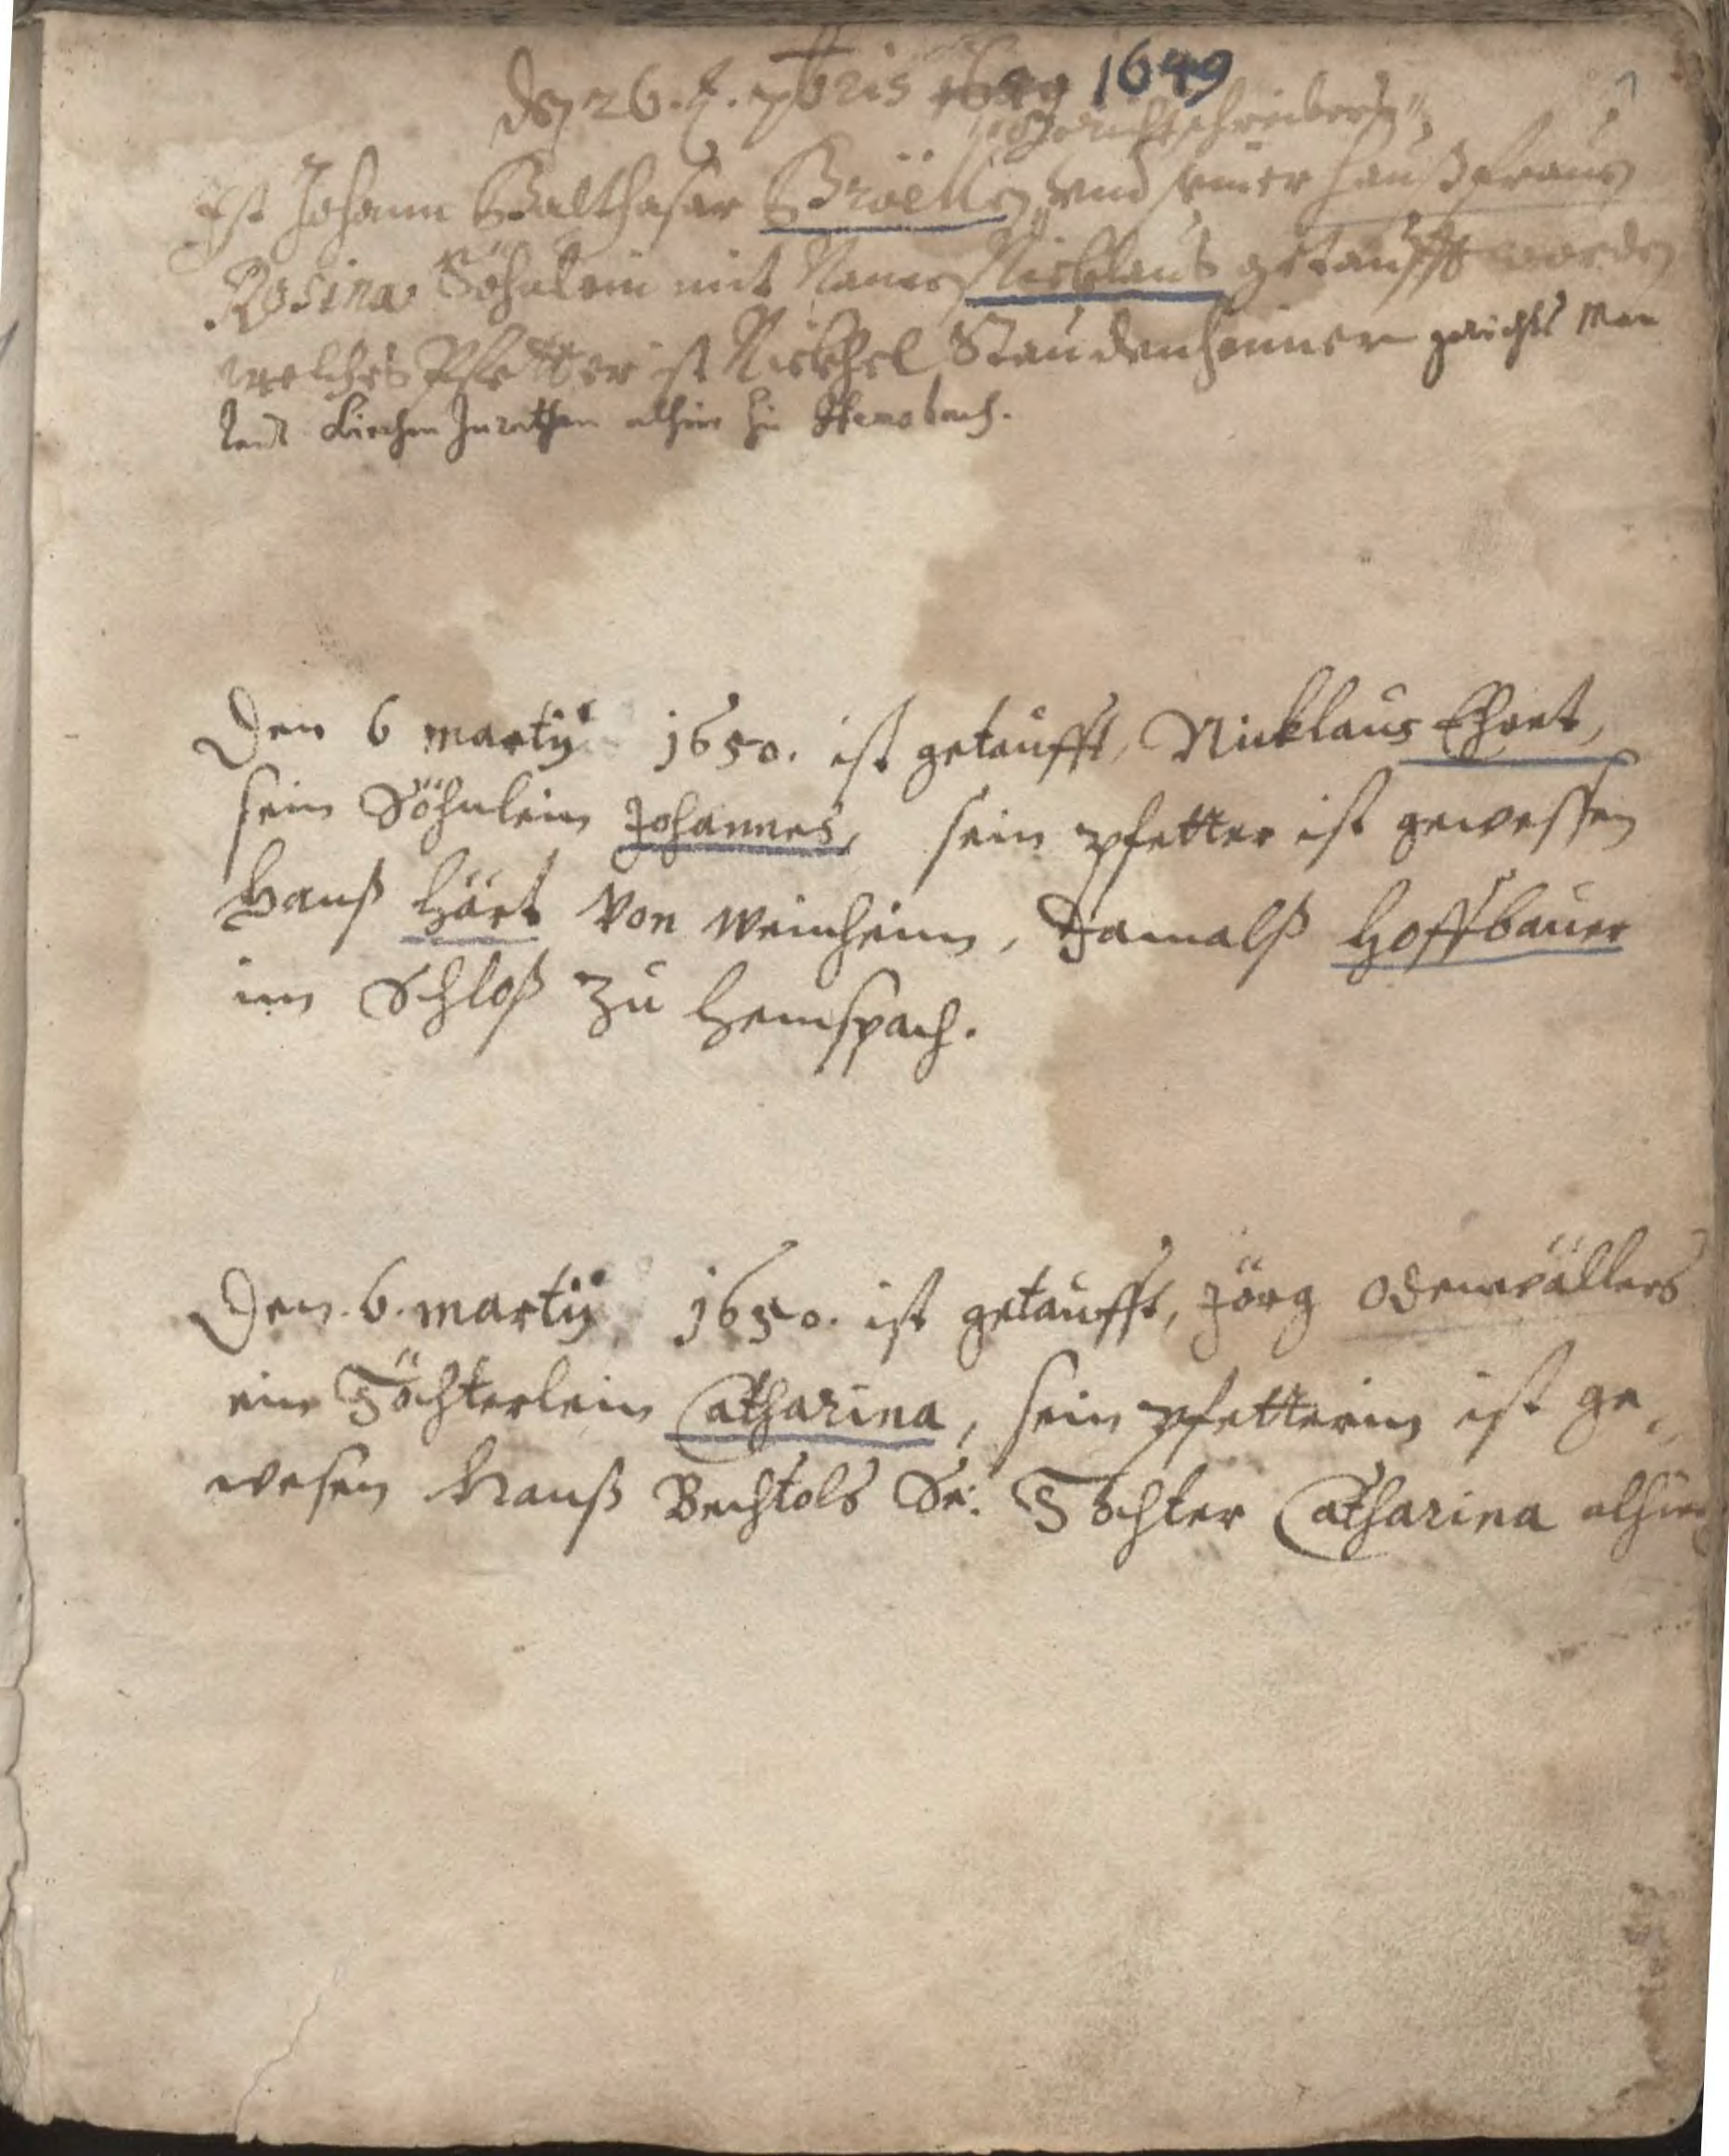 den 26. 7bris 1649 1649
gerichtschreibers
Ist Johann Balthasar und seiner haußfrauen
Rosina Söhnlein mit Namen Nicklaus getaufft worden
welches Pfetter ist Nickhel Staudenheimer gerichts Man
Kirchen alhier zu
Den 6 martÿ 1650. ist getaufft, Nicklaus Ehret,
sein Söhnlein Johannes, sein pfetter ist gewessen
Hanß Härt Von Weinheim, damalß Hoffbauer
im Schloß zu Hemspach.
Den 6. martÿ 1650. ist getaufft, Jörg Odenwällers
ein Töchterlein Catharina, sein pfetterin ist ge„
wesen Hanß Bechtols Se: Tochter Catharina alhier